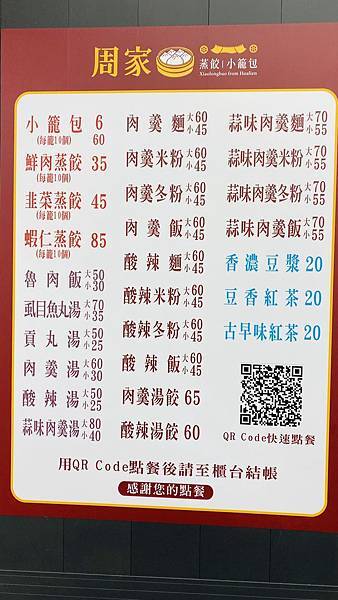 周家 蒸餃|小籠包
Xiaolongbao from Hualien
小籠包 6
(每籠10個) 60
鮮肉蒸餃 35
(每籠10個)
韭菜蒸餃 45
(每籠10個)
蝦仁蒸餃 85
(每籠10個)
魯肉飯 大50 小30
虱目魚丸湯 大70 小35
貢丸湯 大50 小25
肉羹湯 大60 小30
酸辣湯 大50 小25
蒜味肉羹湯 大80 小40
肉羹麵 大60 小45
肉羹米粉 大60 小45
肉羹冬粉 大60 小45
肉羹飯 大60 小45
酸辣麵 大60 小45
酸辣米粉 大60 小45
酸辣冬粉 大60 小45
酸辣飯 大60 小45
肉羹湯餃 65
酸辣湯餃 60
蒜味肉羹麵 大70 小55
蒜味肉羹米粉 大70 小55
蒜味肉羹冬粉 大70 小55
蒜味肉羹飯 大70 小55
香濃豆漿 20
豆香紅茶 20
古早味紅茶 20
QR Code快速點餐
用QR Code點餐後請至櫃台結帳
感謝您的點餐